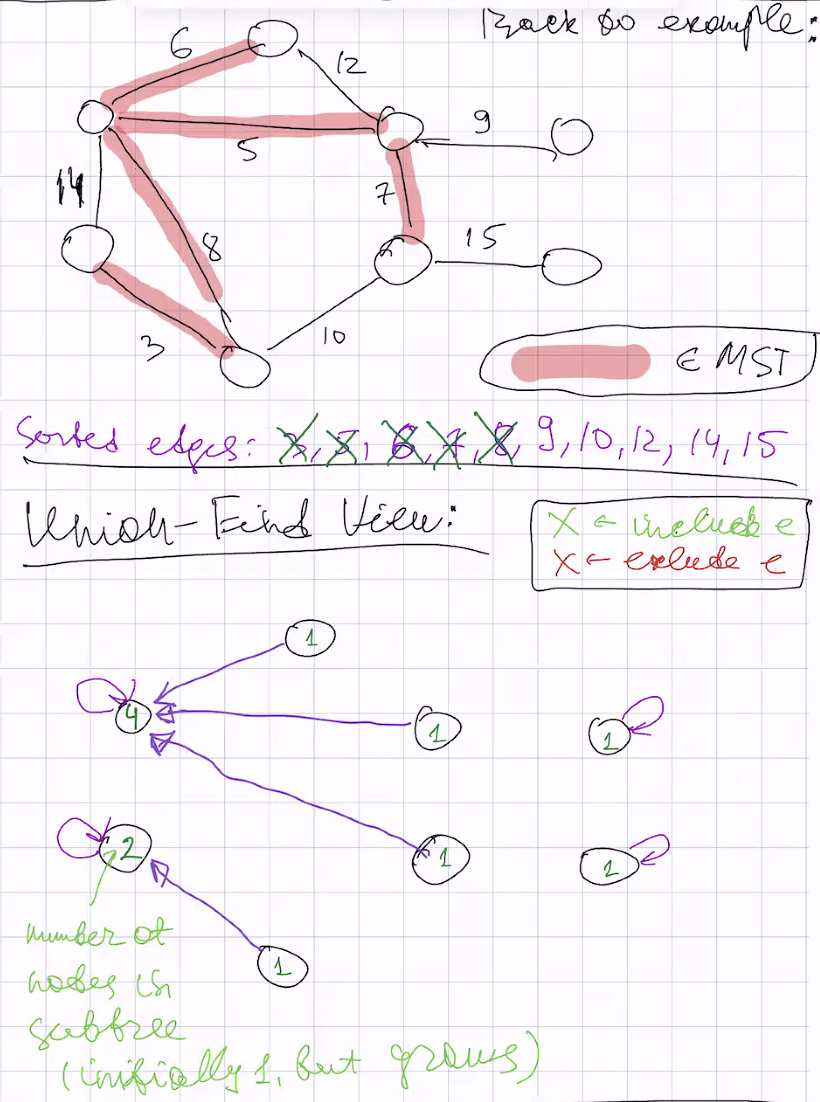 Back to example:
6
12
9
5
14
7
8
15
3
10
∈ MST
Sorted edges: 3, 5, 6, 7, 8, 9, 10, 12, 14, 15
Union-Find View:
X ← include e
X ← exclude e
1
4
1
1
2
1
1
1
number of
nodes in
subtree
(initially 1, but grows)